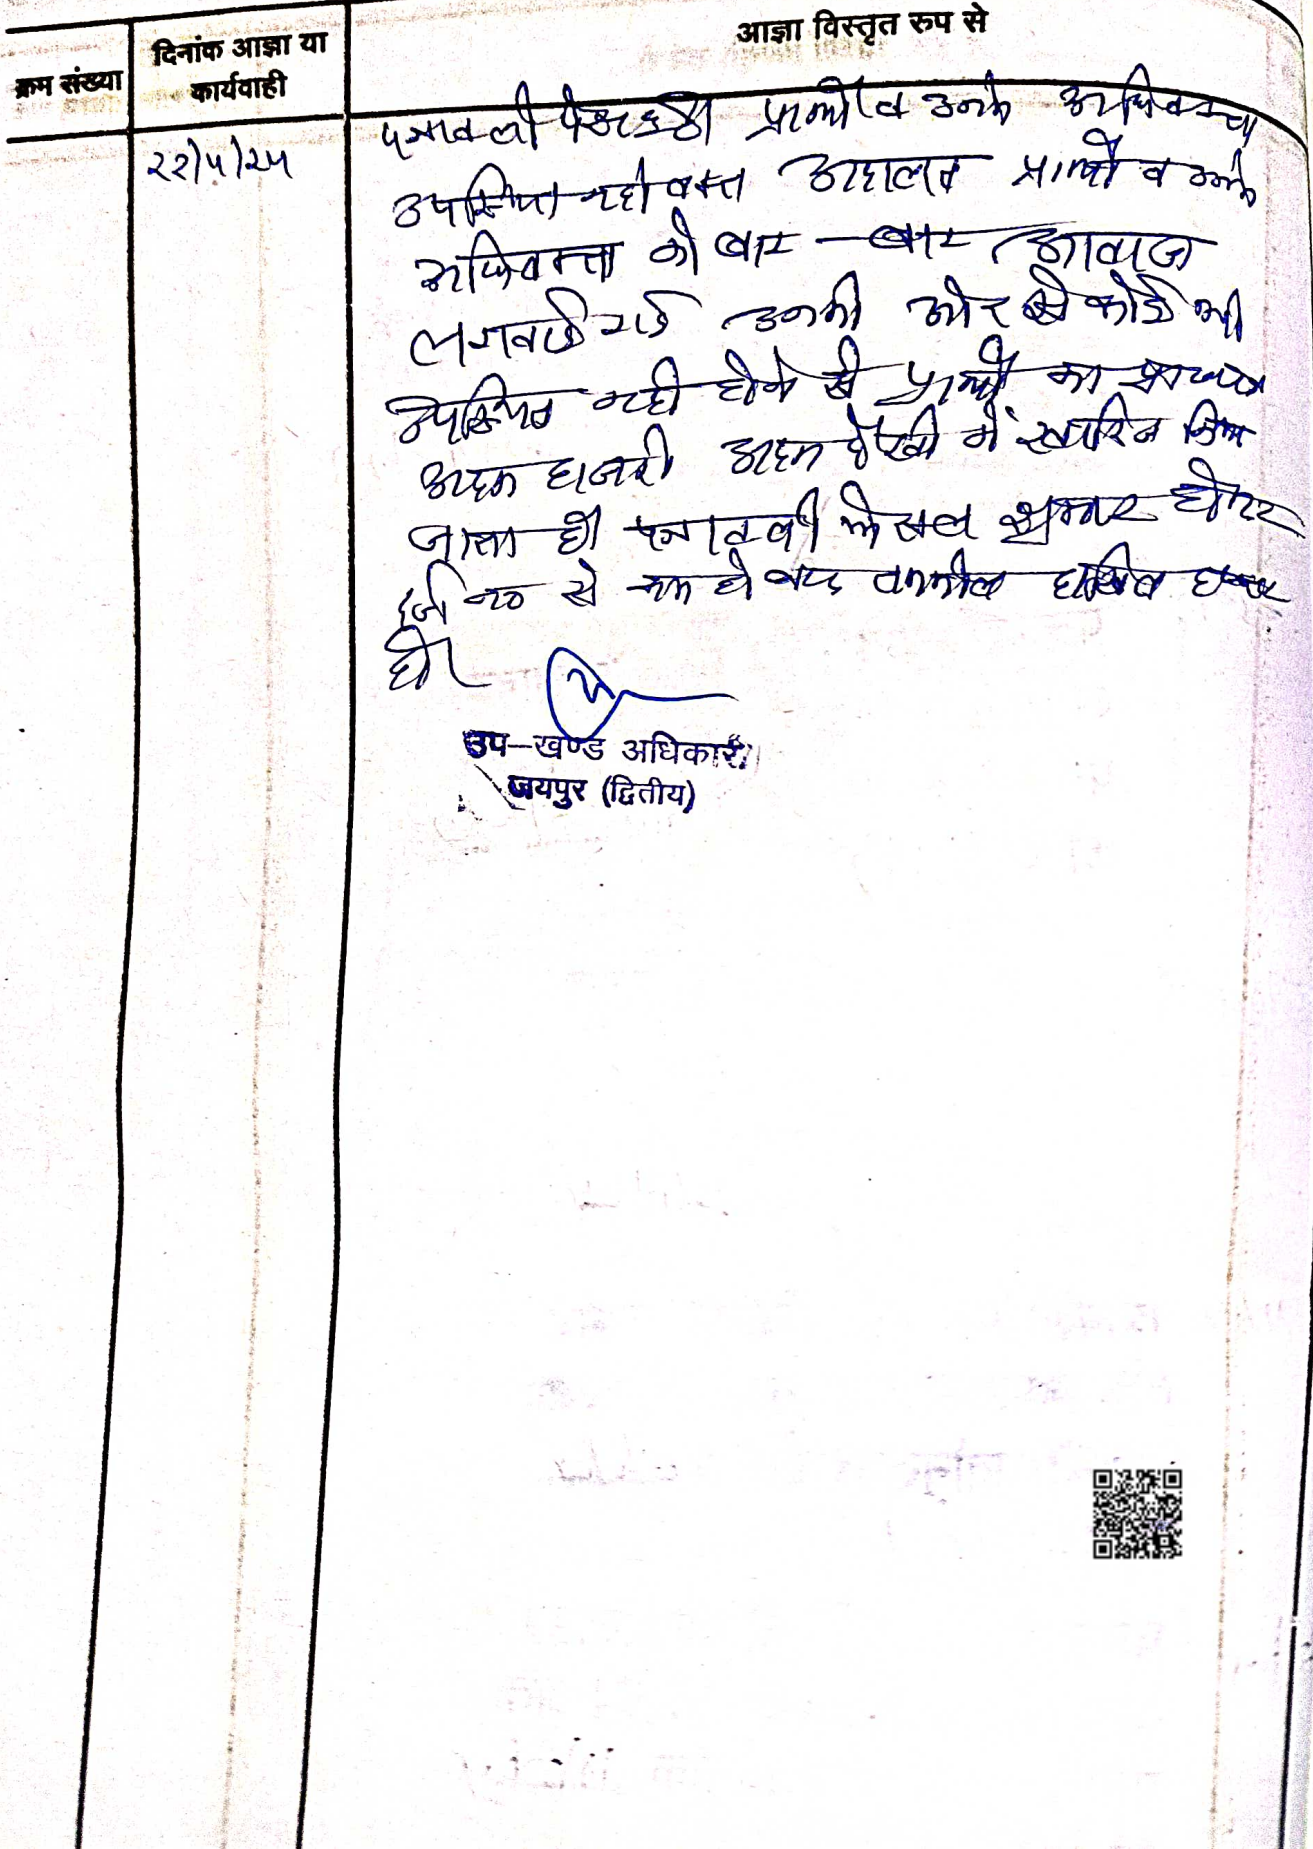 आज्ञा विस्तृत रुप से
दिनांक आज्ञा या
कार्यवाही
क्रम संख्या
पत्रावली पेश हुई। प्रार्थी व उनके अधिवक्ता
22/5/25
उपस्थित नही वक्त अदालत प्रार्थी व उनके
अधिवक्ता को बार-बार आवाज
लगवाई गई उनकी ओर से कोई भी
उपस्थित नही होने से प्रार्थी का
अदम हाजरी अदम पैरवी में खारिज किया
जाता है। पत्रावली फैसल शुमार होकर
दर्ज नं0 से कम हो बाद तकमील दाखिल दफ्तर
हो।
उप-खण्ड अधिकारी
जयपुर (द्वितीय)